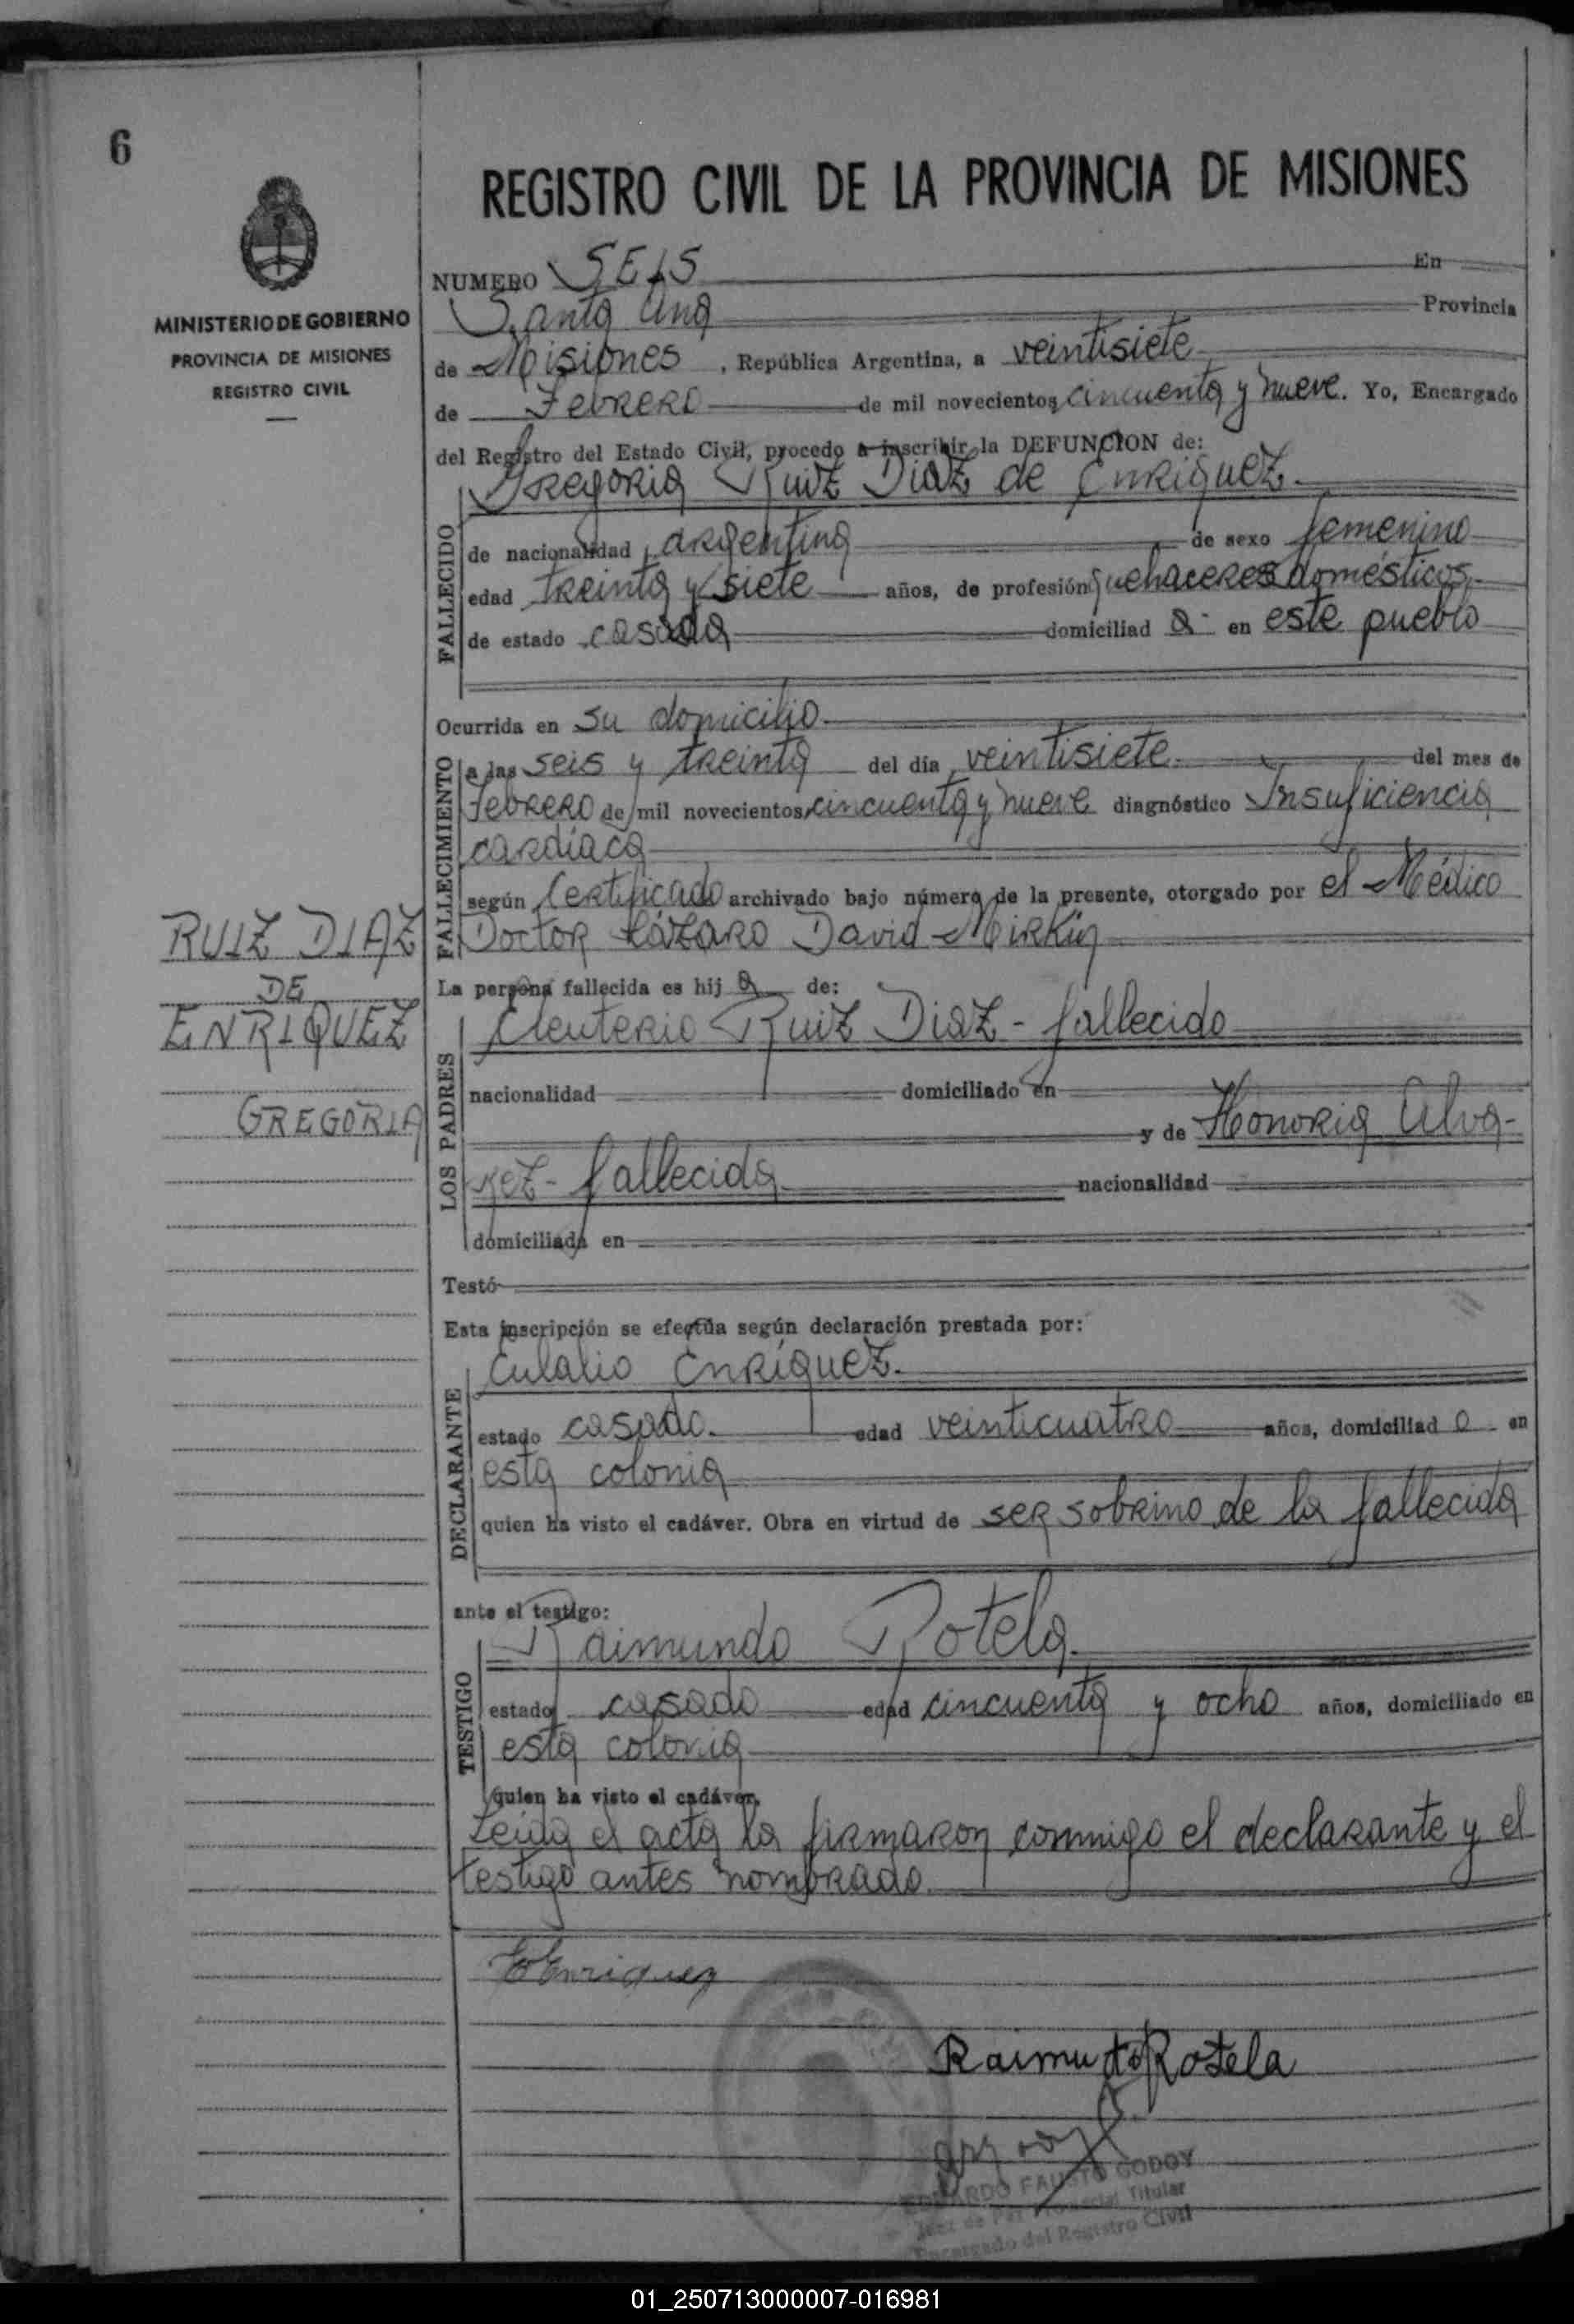 6
REGISTRO CIVIL DE LA PROVINCIA DE MISIONES
MINISTERIO DE GOBIERNO
PROVINCIA DE MISIONES
REGISTRO CIVIL
NUMERO SEIS En
Santa Ana Provincia
de Misiones, República Argentina, a veintisiete
de Febrero de mil novecientos cincuenta y nueve. Yo, Encargado
del Registro del Estado Civil, procedo a inscribir la DEFUNCION de:
Gregoria Ruiz Diaz de Enriquez.
FALLECIDO
de nacionalidad argentina de sexo femenino
edad treinta y siete años, de profesión quehaceres domésticos.
de estado casada domiciliad a en este pueblo
Ocurrida en su domicilio.
FALLECIMIENTO
a las seis y treinta del día veintisiete. del mes de
Febrero de mil novecientos cincuenta y nueve diagnóstico Insuficiencia
cardíaca
según Certificado archivado bajo número de la presente, otorgado por el Médico
Doctor Lázaro David Mirkin
RUIZ DIAZ
DE
ENRIQUEZ
GREGORIA
La persona fallecida es hij a de:
LOS PADRES
Eleuterio Ruiz Diaz - fallecido
nacionalidad domiciliado en
y de Honoria Alva-
rez - fallecida nacionalidad
domiciliada en
Testó
Esta inscripción se efectúa según declaración prestada por:
DECLARANTE
Eulalio Enríquez.
estado casado. edad veinticuatro años, domiciliad o en
esta colonia
quien ha visto el cadáver. Obra en virtud de ser sobrino de la fallecida
ante el testigo:
TESTIGO
Raimundo Rotela.
estado casado edad cincuenta y ocho años, domiciliado en
esta colonia
quien ha visto el cadáver.
Leída el acta la firmaron conmigo el declarante y el
testigo antes nombrado.
EEnriquez
Raimundo Rotela
EDUARDO FAUSTO GODOY
Juez de Paz Provincial Titular
Encargado del Registro Civil
01_250713000007-016981